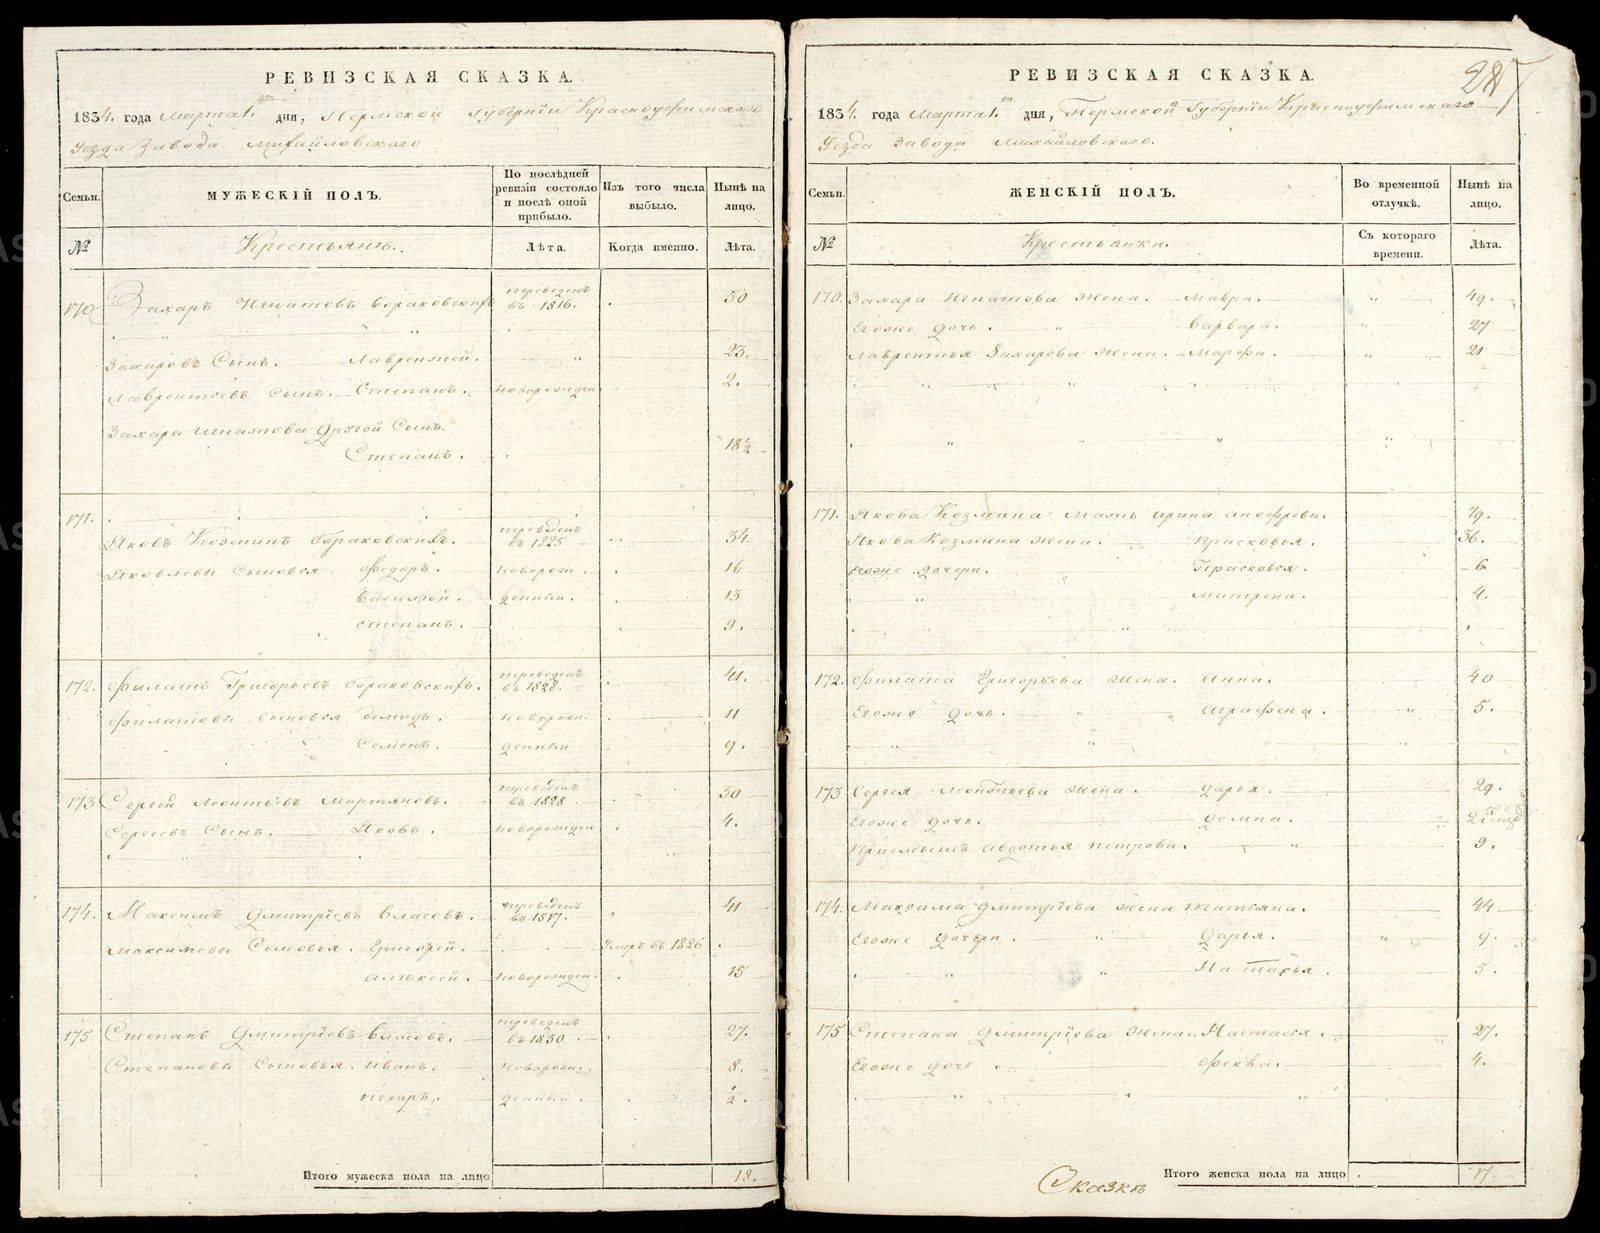 РЕВИЗСКАЯ СКАЗКА.
1834. года Марта 1. дня, Пермской Губернїи Красноуфимскаго
Уезда Завода Михайловскаго
Семьи.
МУЖЕСКІЙ ПОЛЪ.
По послѣдней ревизіи состояло и послѣ оной прибыло.
Изъ того числа выбыло.
Нынѣ на лицо.
№
Крестьянъ.
Лѣта.
Когда именно.
Лѣта.
170 Захаръ Игнатовъ переведенъ въ 1816. 50
Захаровъ Сынъ. Лаврентей. 23.
Лаврентьевъ Сынъ. Степанъ. Новорожден 2.
Захара Игнатова Другой Сынъ.
Степанъ. 18½
171.
Яковъ Козминъ переведенъ въ 1825 34
Яковлевы Сыновья. Федоръ. Новорож. 16
Василей. денныи. 13
Степанъ. 9.
172. Филатъ Григорьевъ переведенъ въ 1828. 41.
Филатовы Сыновья Демидъ. Новорож. 11
Семенъ. денныи 9.
173 Сергей Леонтьевъ Мартяновъ. переведенъ въ 1828 30
Сергеевъ Сынъ. Яковъ. Новорожден 4.
174. Максимъ Дмитрїевъ Власовъ. переведенъ въ 1817. 41
Максимовы Сыновья. Григорей. Умръ въ 1826
Алексей. Новорожден. 15
175 Степанъ Дмитрїевъ Власовъ. переведенъ въ 1830 27.
Степановы Сыновья. Иванъ. Новорож. 8.
Петръ. денныи. ½.
Итого мужеска пола на лицо 18.
287
РЕВИЗСКАЯ СКАЗКА.
1834. года Марта 1. дня, Пермской Губернїи Красноуфимскаго
Уезда Завода Михайловскаго.
Семьи.
ЖЕНСКІЙ ПОЛЪ.
Во временной отлучкѣ.
Нынѣ на лицо.
№
Крестьянки.
Съ котораго времени.
Лѣта.
170. Захара Игнатова жена. Мавра. 49.
Егоже дочь. Варвара. 27
Лаврентья Захарова жена. Марфа. 21
171. Якова Козмина мать Ирина 79.
Якова Козмина жена. Прасковья. 36.
Егоже дочери. Прасковья. 6
Матрена. 4.
172. Филата Григорьева жена. Анна. 40
Егоже дочь. Аграфена. 5.
173 Сергея Леонтьева жена. Дарья. 29.
Егоже дочь. Домна. 2
Приемышъ Авдотья Петрова. 9.
174. Максима Дмитрїева жена Татьяна. 44
Егоже дочери. Дарья. 9.
Наталья. 5.
175 Степана Дмитрїева жена. Настасья. 27.
Егоже дочь Фекла. 4.
Итого женска пола на лицо 17.
Сказкѣ